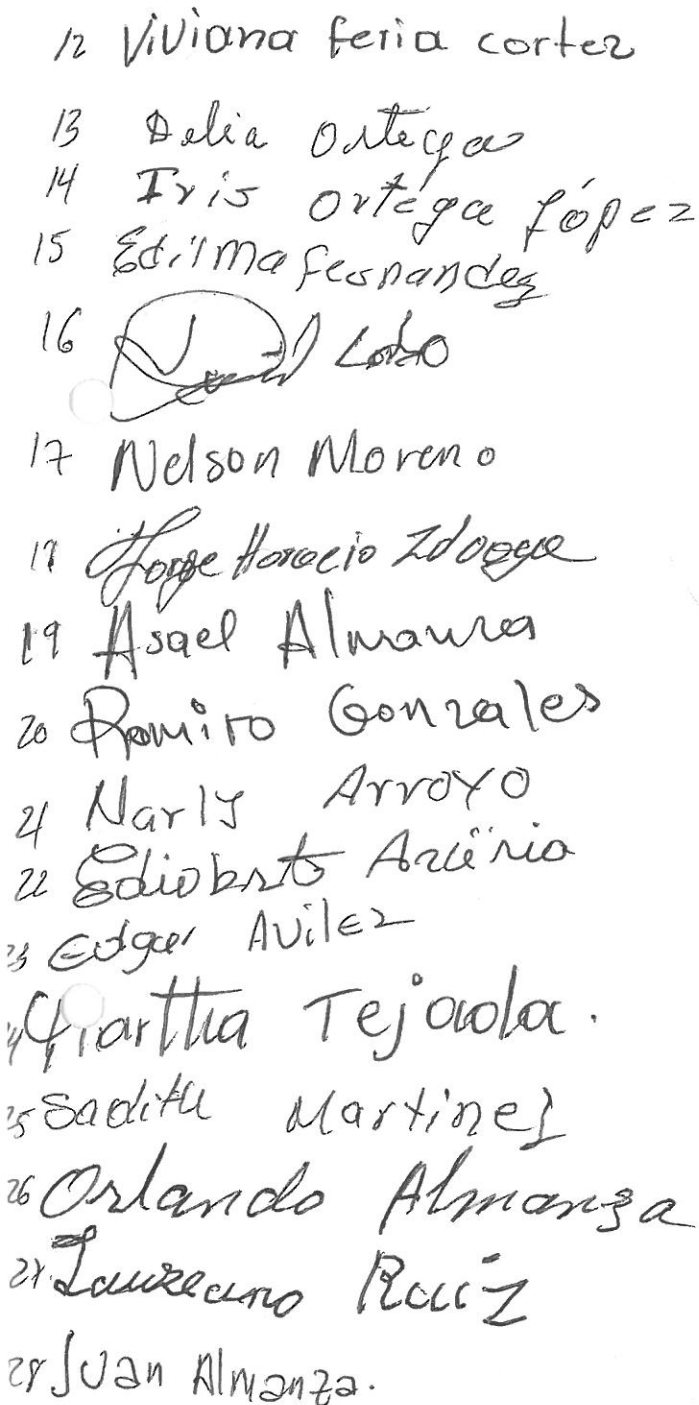 12 Viviana feria cortez
13 Delia Ortega
14 Iris ortéga López
15 Edilma fernandez
16 Lobo
17 Nelson Moreno
18 Jorge Horacio Idogye
19 Asael Almanza
20 Ramiro Gonzales
21 Narly Arroyo
22 Edioberto
23 Edgar Avilez
24 Martha Tejada.
25 Sadith Martinez
26 Orlando Almanza
27. Laureano Ruíz
28 Juan Almanza.